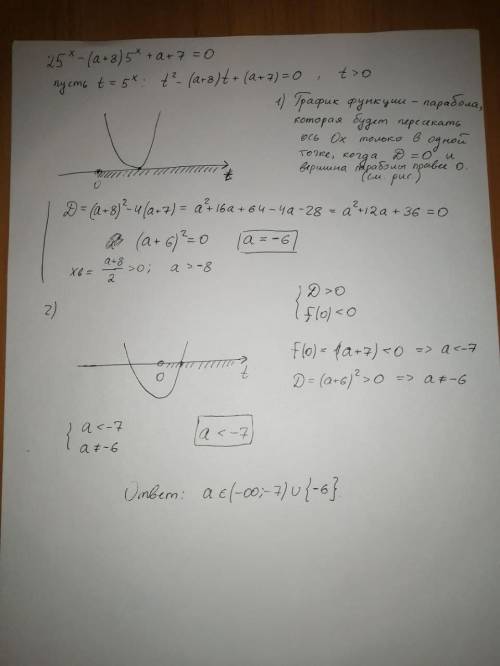 25^x - (a+8)5^x + a+7 = 0
пусть t = 5^x: t² - (a+8)t + (a+7) = 0 , t > 0
1) График функции - парабола,
которая будет пересекать
ось Ox только в одной
точке, когда D = 0 и
вершина параболы правее 0.
(см. рис.)
0 t
D = (a+8)² - 4(a+7) = a² + 16a + 64 - 4a - 28 = a² + 12a + 36 = 0
(a+6)² = 0 a = -6
xв = (a+8)/2 > 0; a > -8
2)
{ D > 0
f(0) < 0
0 t
f(0) = (a+7) < 0 => a < -7
D = (a+6)² > 0 => a ≠ -6
{ a < -7
a ≠ -6
a < -7
Ответ: a ∈ (-∞; -7) ∪ {-6}